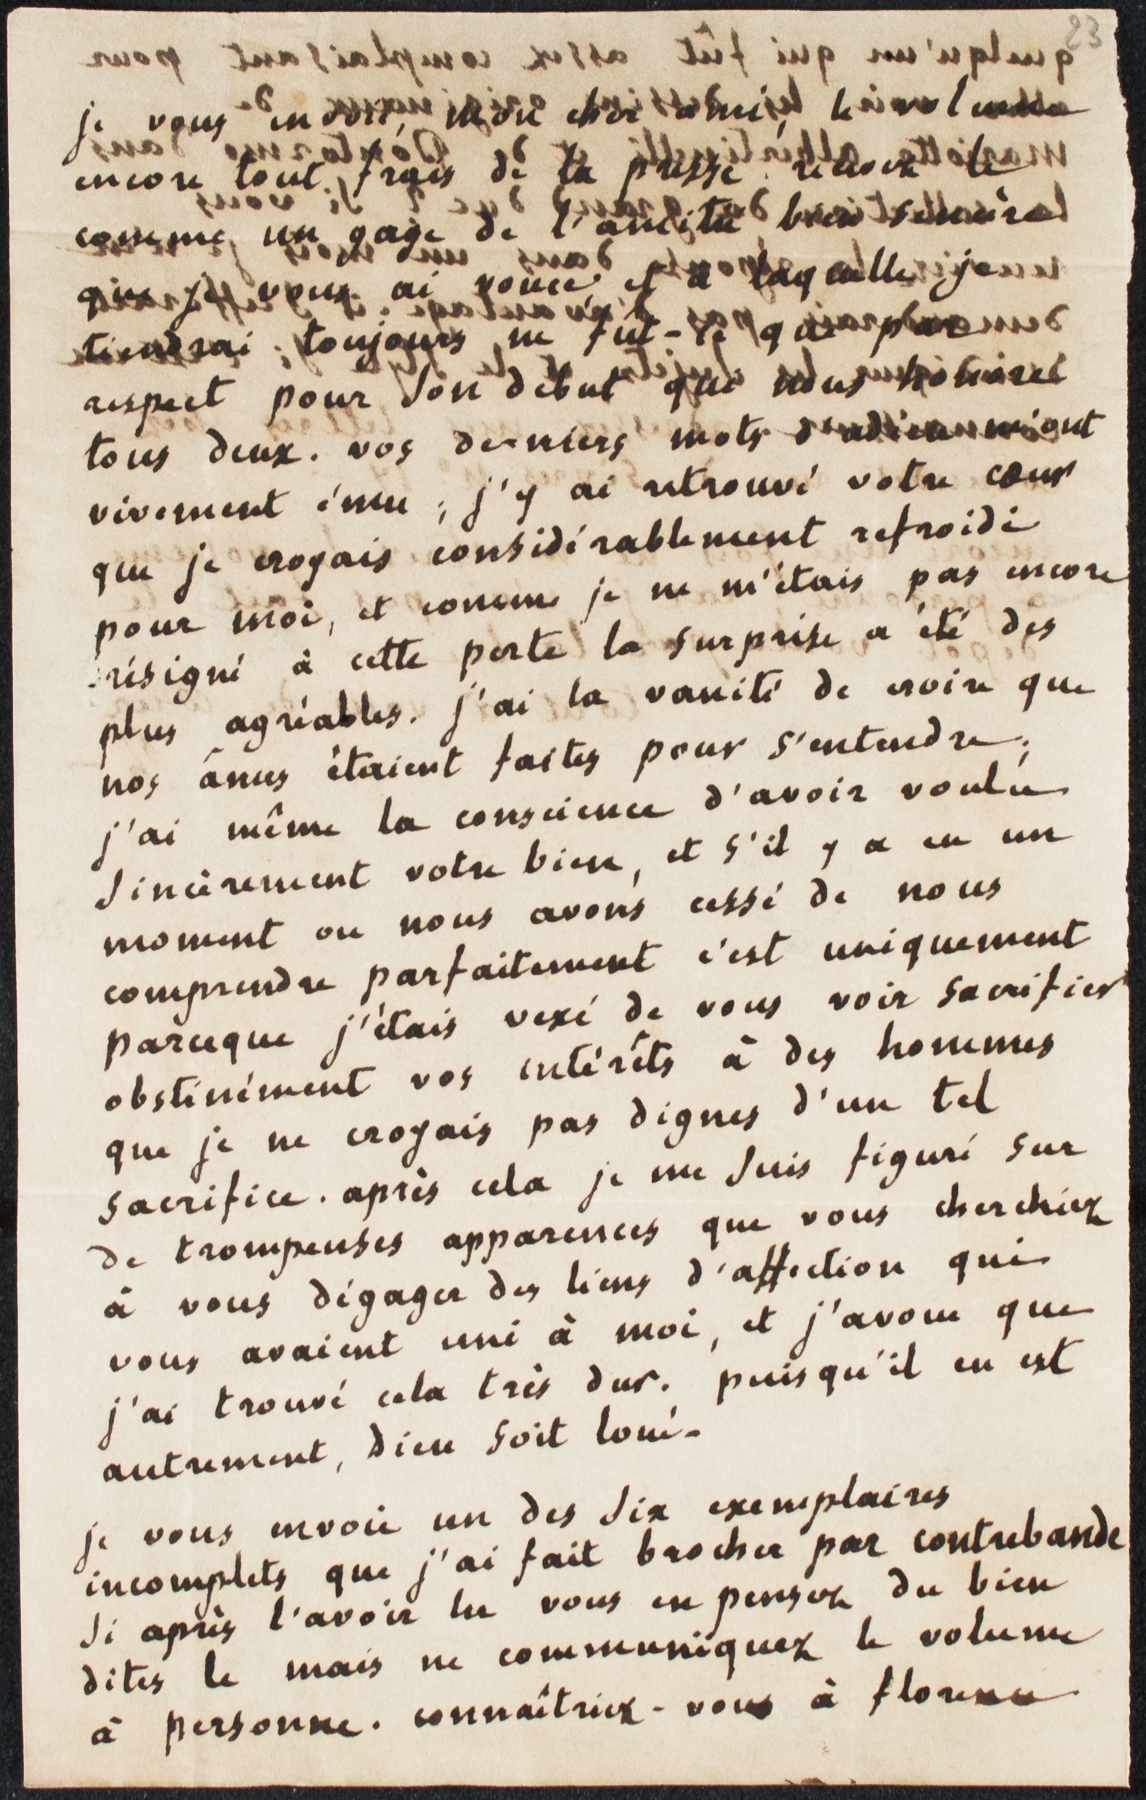 23
je vous envoie, mon cher ami, le volume
encore tout frais de la presse. recevez le
comme un gage de l'amitié bien sincère
que je vous ai vouée et à laquelle je
tiendrai toujours ne fût-ce que par
respect pour son début que nous honore
tous deux. vos derniers mots d'adieu m'ont
vivement ému ; j'y ai retrouvé votre cœur
que je croyais considérablement refroidi
pour moi, et comme je ne m'étais pas encore
résigné à cette perte la surprise a été des
plus agréables. j'ai la vanité de croire que
nos âmes étaient faites pour s'entendre ;
j'ai même la conscience d'avoir voulu
sincèrement votre bien, et s'il y a eu un
moment ou nous avons cessé de nous
comprendre parfaitement c'est uniquement
parceque j'étais vexé de vous voir sacrifier
obstinément vos intérêts à des hommes
que je ne croyais pas dignes d'un tel
sacrifice. après cela je me suis figuré sur
de trompeuses apparences que vous cherchiez
à vous dégager des liens d'affection qui
vous avaient uni à moi, et j'avoue que
j'ai trouvé cela très dur. puisqu'il en est
autrement, dieu soit loué.
je vous envoie un des six exemplaires
incomplets que j'ai fait brocher par contrebande
si après l'avoir lu vous en pensez du bien
dites le mais ne communiquez le volume
à personne. connaîtriez-vous à florence